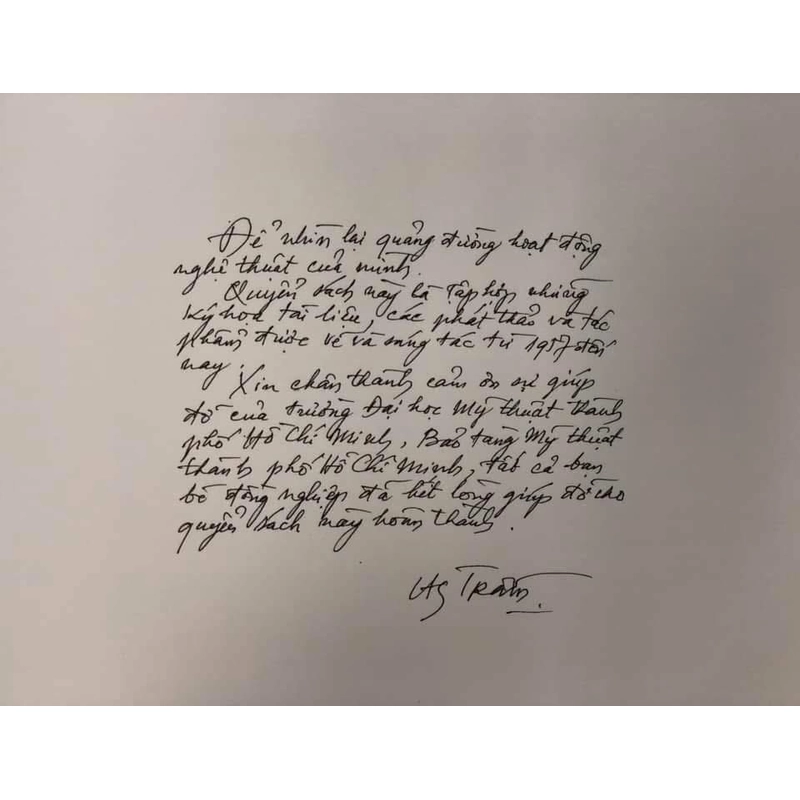 Để nhìn lại quảng đường hoạt động
nghệ thuật của mình.
Quyển sách này là tập hợp những
ký họa tài liệu, các phát thảo và tác
phẩm được vẽ và sáng tác từ 1957 đến
nay.
Xin chân thành cảm ơn sự giúp
đỡ của trường Đại học Mỹ thuật thành
phố Hồ Chí Minh, Bảo tàng Mỹ thuật
thành phố Hồ Chí Minh, tất cả bạn
bè đồng nghiệp đã hết lòng giúp đỡ cho
quyển sách này hoàn thành.